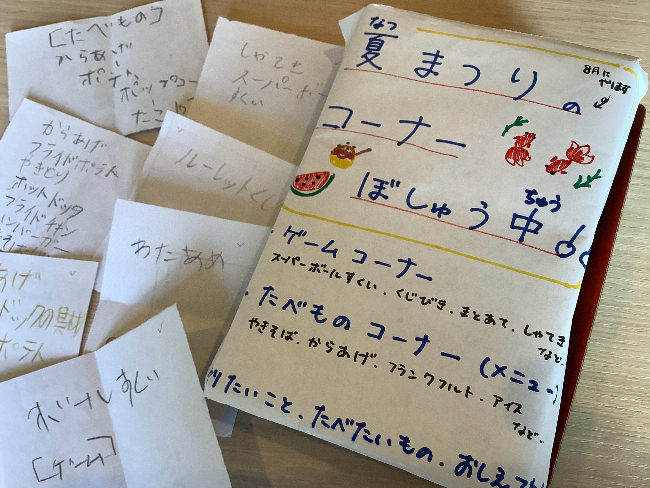 [たべもの]
からあげ
ポテト
ポップコー
たこや
しゃてき
スーパーボー
すくい
からあげ
フライドポテト
やきとり
ホットドック
フライドチキン
ハンバーガー
ルーレットくじ
わたあめ
あげ
ドックの具材
ポテト
ボールすくい
[ゲーム]
なつ
夏まつりの
8月に
やります
コーナー
ぼしゅう中
ちゅう
・ゲームコーナー
スーパーボールすくい・くじびき・まとあて・しゃてき
など…
・たべものコーナー(メニュー)
やきそば・からあげ・フランクフルト・アイス
など…
りたいこと、たべたいもの、おしえて